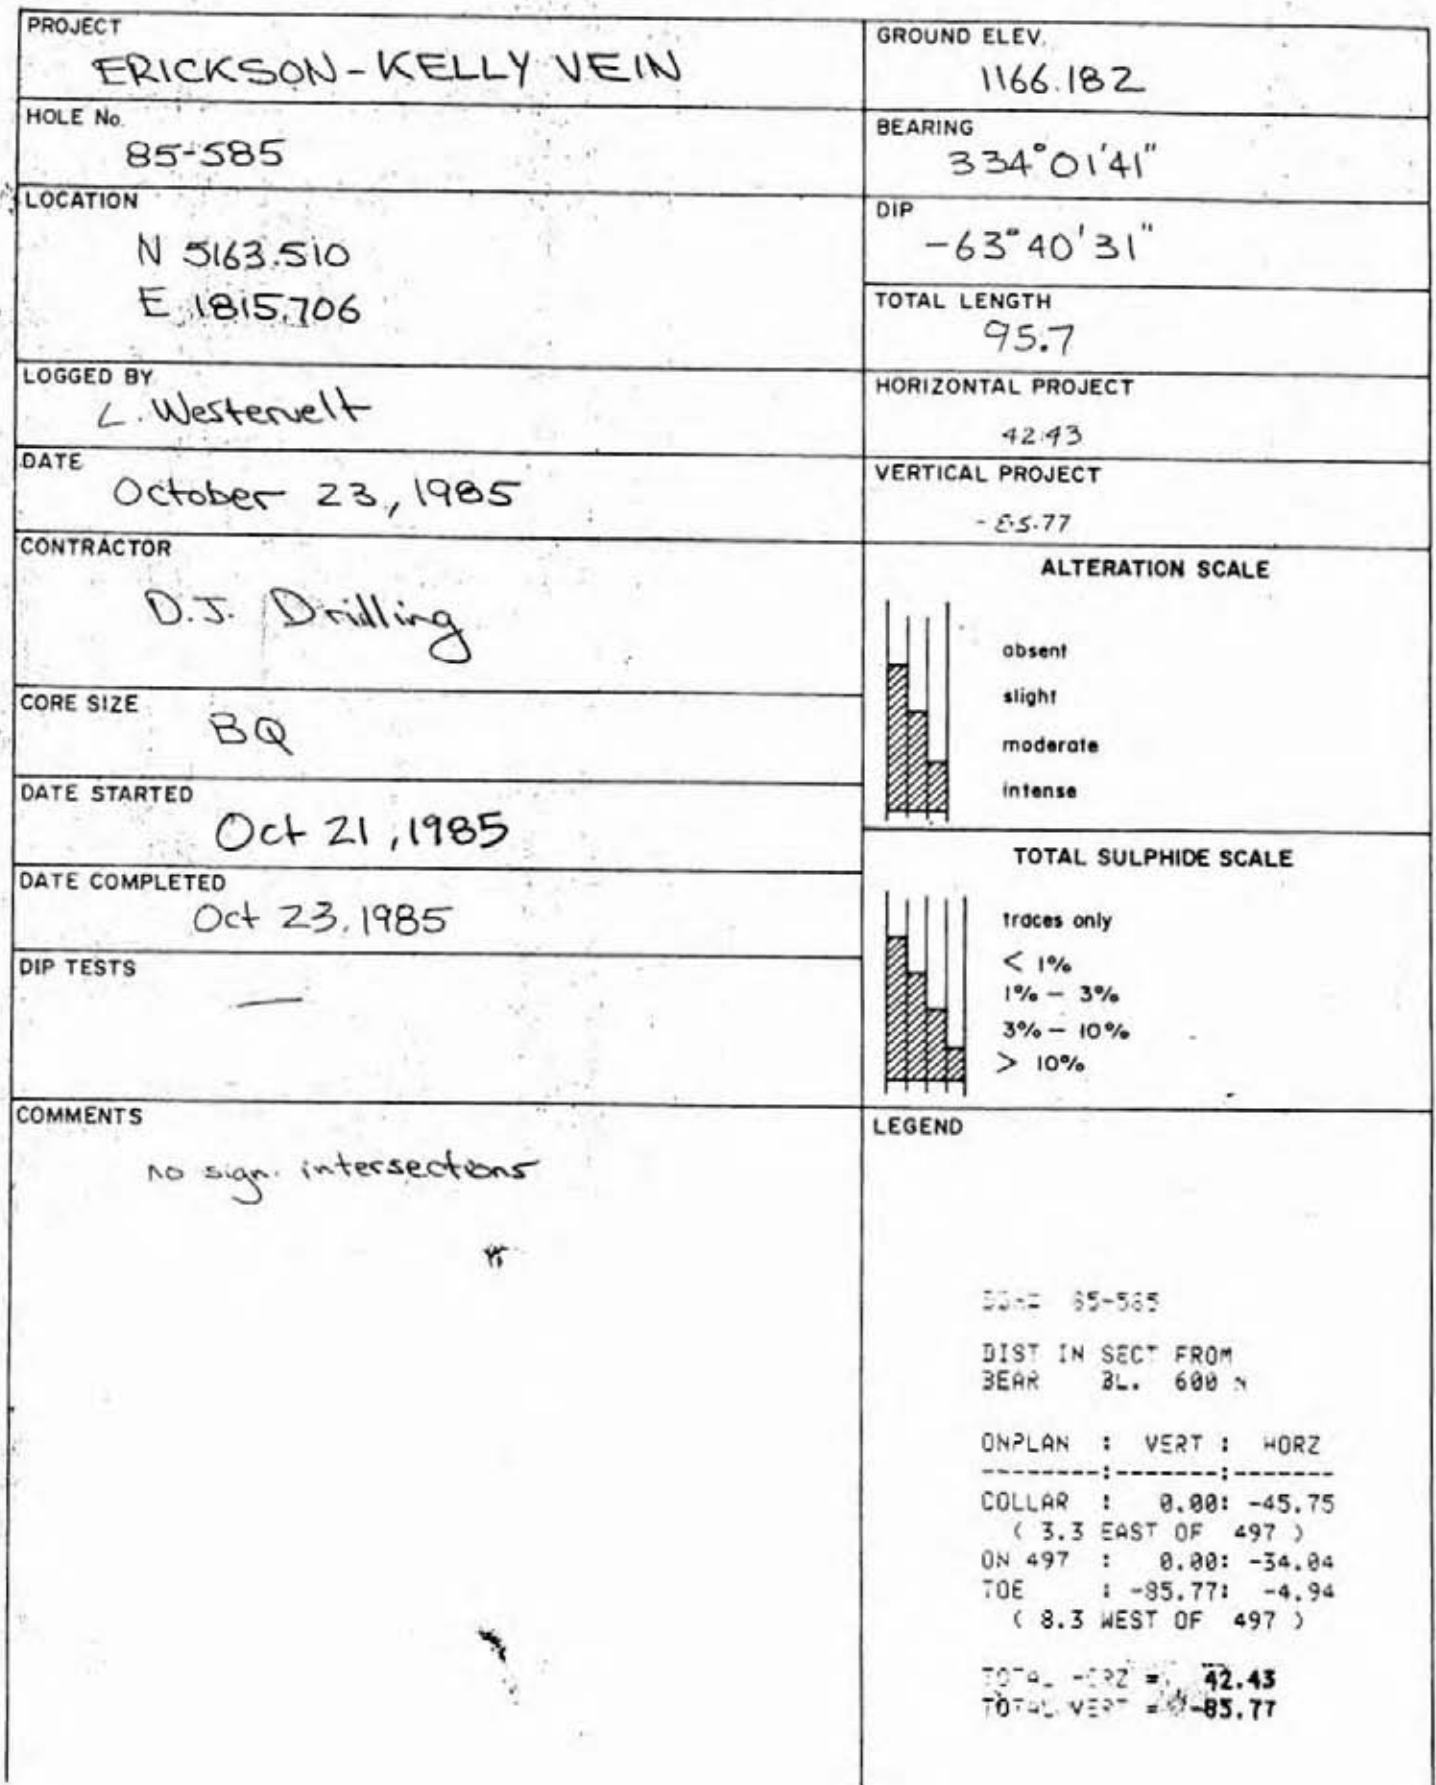 PROJECT
ERICKSON-KELLY VEIN
HOLE No.
85-585
LOCATION
N 5163.510
E 1815.706
LOGGED BY
L. Westervelt
DATE
October 23, 1985
CONTRACTOR
D.J. Drilling
CORE SIZE
BQ
DATE STARTED
Oct 21, 1985
DATE COMPLETED
Oct 23, 1985
DIP TESTS
—
COMMENTS
no sign. intersections
GROUND ELEV.
1166.182
BEARING
334°01'41"
DIP
-63°40'31"
TOTAL LENGTH
95.7
HORIZONTAL PROJECT
42.43
VERTICAL PROJECT
-85.77
ALTERATION SCALE
absent
slight
moderate
intense
TOTAL SULPHIDE SCALE
traces only
< 1%
1% — 3%
3% — 10%
> 10%
LEGEND
85-585
DIST IN SECT FROM
BEAR BL. 600 N
ONPLAN : VERT : HORZ
--------:-------:-------
COLLAR : 0.00: -45.75
( 3.3 EAST OF 497 )
ON 497 : 0.00: -34.04
TOE : -85.77: -4.94
( 8.3 WEST OF 497 )
TOTAL HORZ = 42.43
TOTAL VERT = -85.77